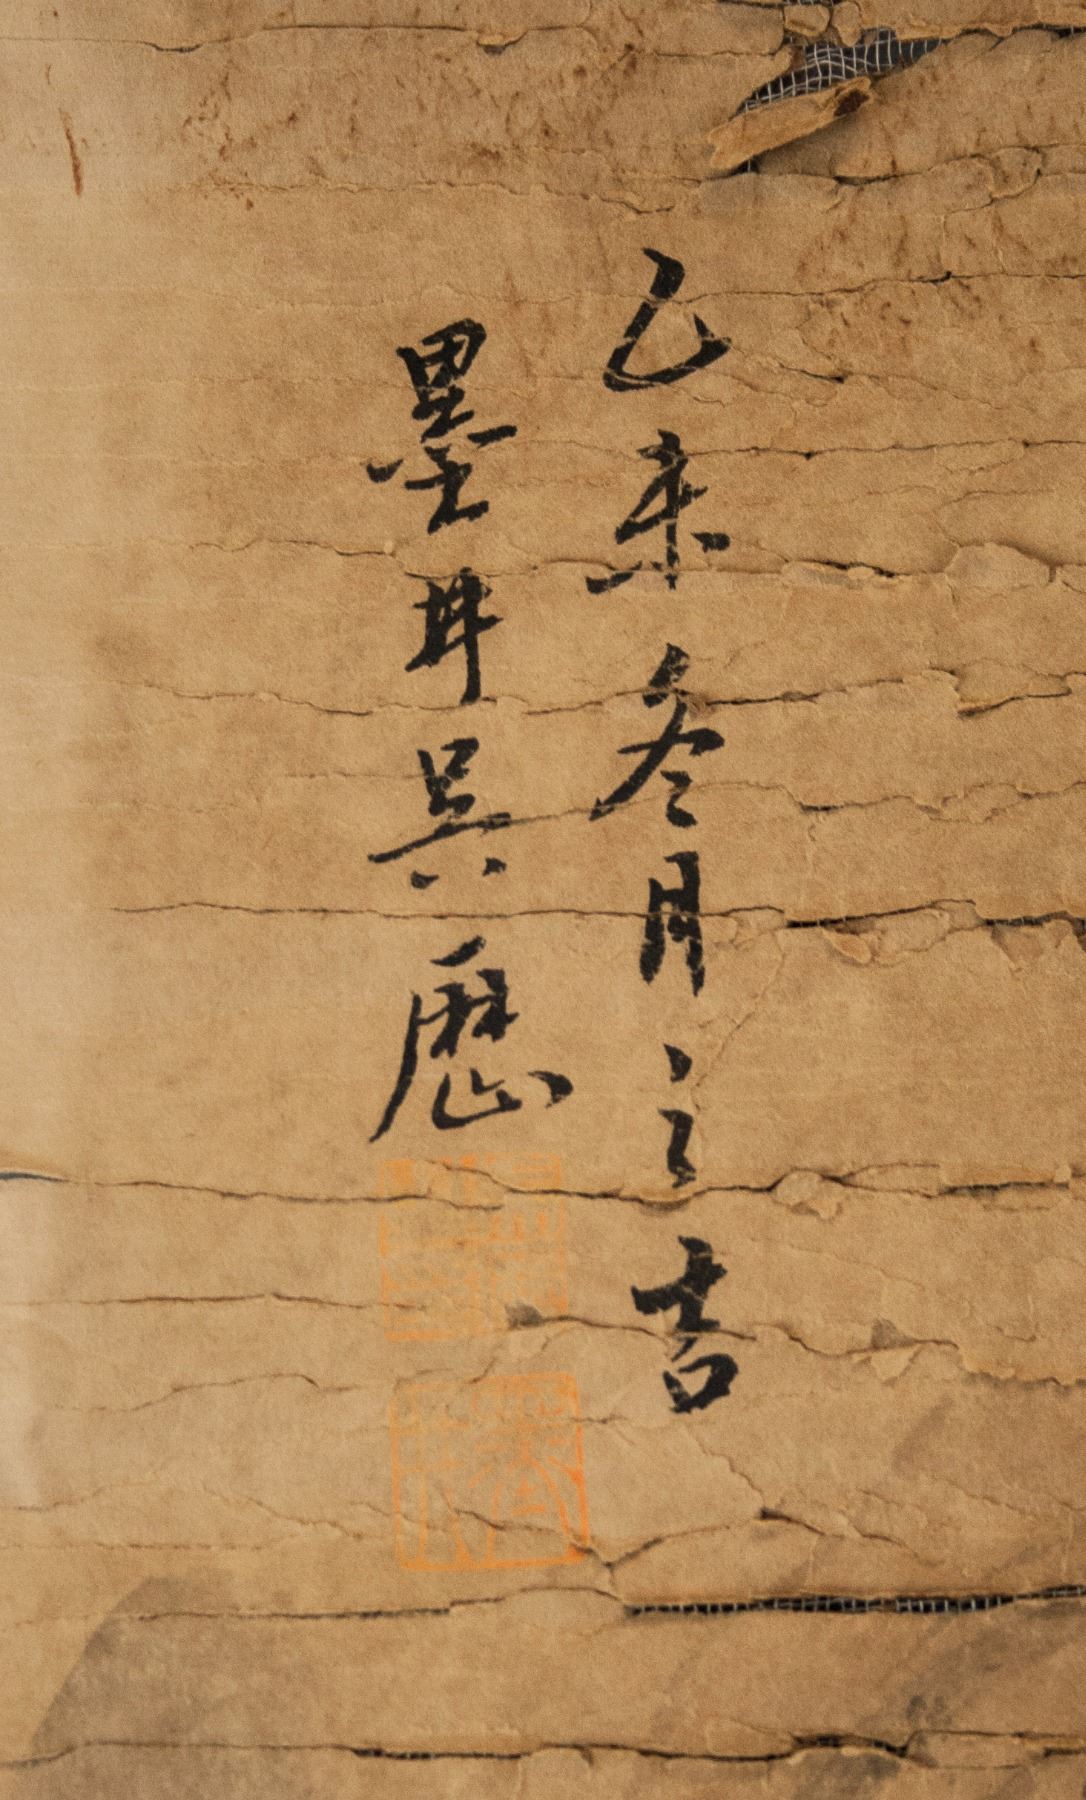 乙未冬月之吉
墨井吳歷